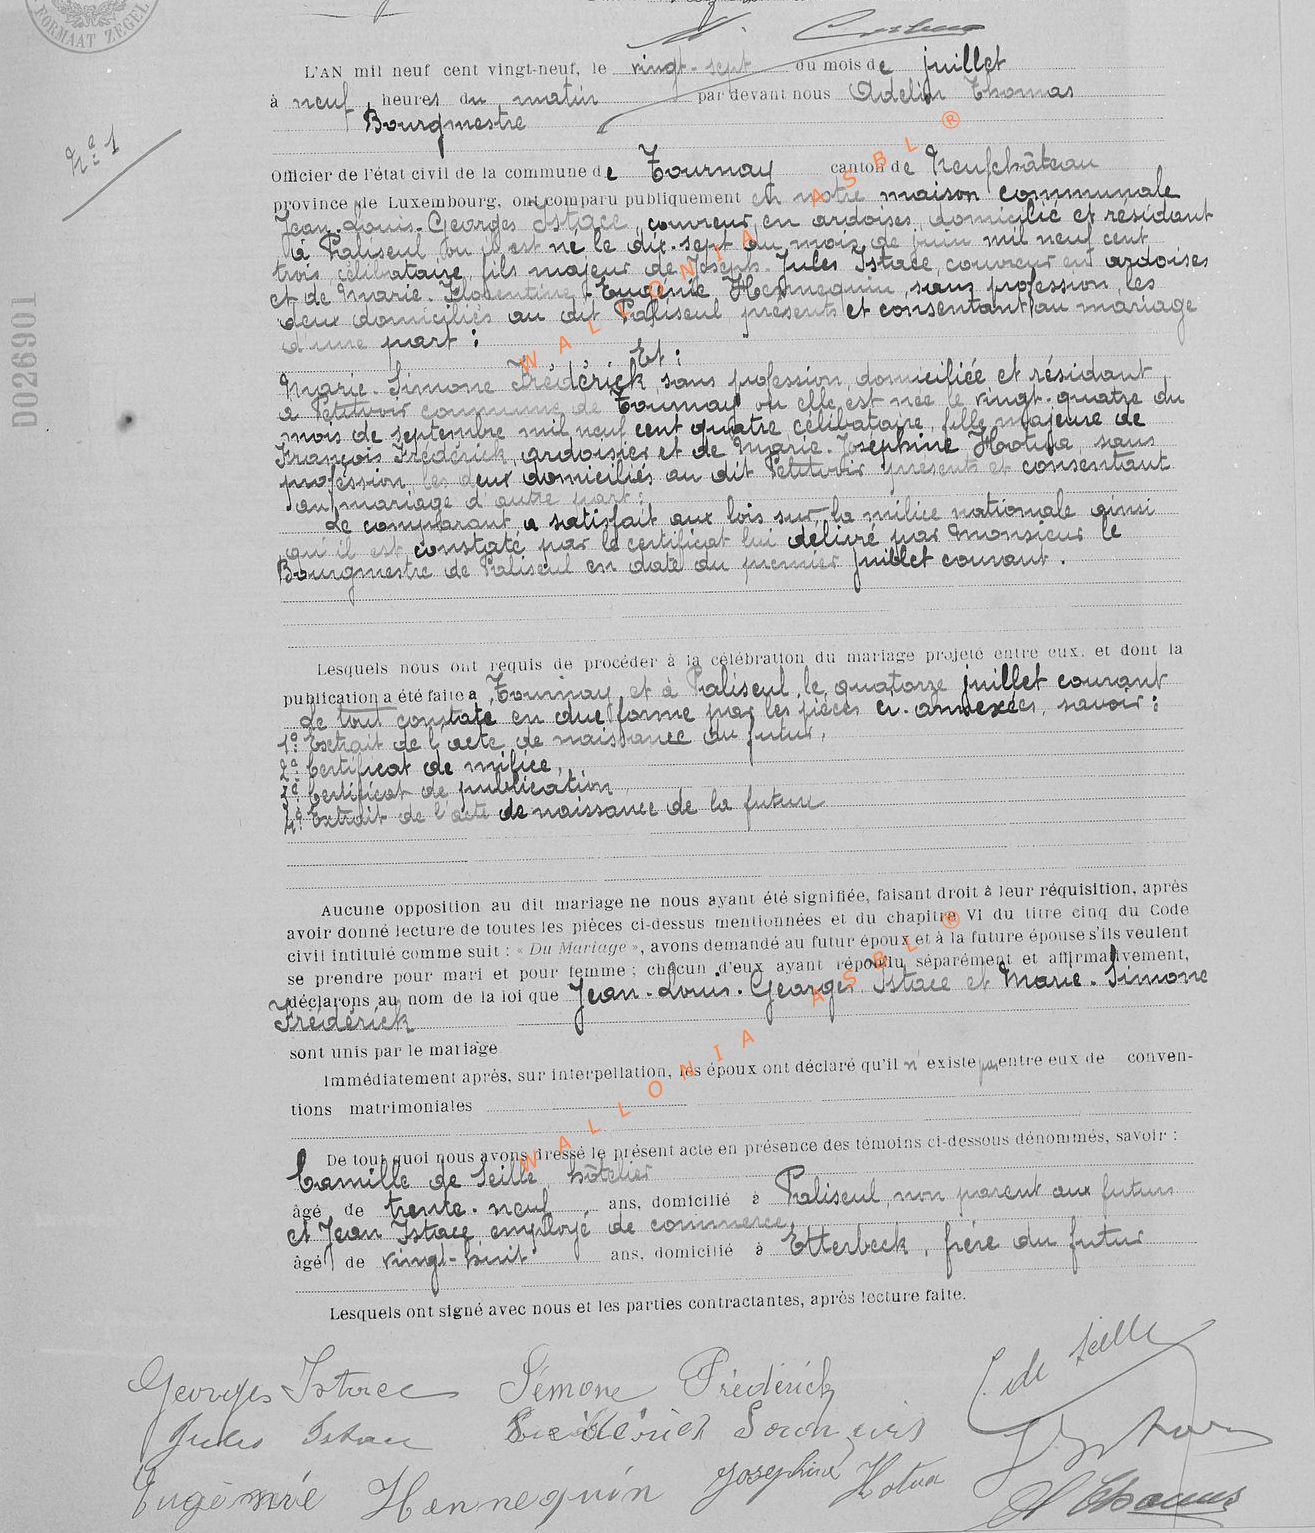 FORMAAT ZEGEL
L'AN mil neuf cent vingt-neuf, le vingt-sept du mois de juillet
à neuf heures du matin par devant nous Adelin Thomas
Bourgmestre
Nº 1
Officier de l'état civil de la commune de Tournay canton de Neufchâteau
province de Luxembourg, ont comparu publiquement en notre maison communale
Jean-Louis-Georges Istace, couvreur en ardoises, domicilié et résidant
à Paliseul où il est né le dix-sept du mois de juin mil neuf cent
trois, célibataire, fils majeur de Joseph-Jules Istace, couvreur en ardoises
et de Marie-Florentine-Eugénie Hennequin, sans profession, les
deux domiciliés au dit Paliseul présents et consentant au mariage
d'une part ;
Et :
Marie-Simone Frédérick, sans profession, domiciliée et résidant
à Petitvoir commune de Tournay où elle est née le vingt-quatre du
mois de septembre mil neuf cent quatre célibataire, fille majeure de
François Frédérick, ardoisier et de Marie-Joséphine Hotua, sans
profession les deux domiciliés au dit Petitvoir présents et consentant
au mariage d'autre part ;
Le comparant a satisfait aux lois sur la milice nationale ainsi
qu'il est constaté par le certificat lui délivré par Monsieur le
Bourgmestre de Paliseul en date du premier juillet courant.
D026901
Lesquels nous ont requis de procéder à la célébration du mariage projeté entre eux, et dont la
publication a été faite à Tournay et à Paliseul, le quatorze juillet courant
de tout constaté en due forme par les pièces ci-annexées, savoir :
1º Extrait de l'acte de naissance du futur,
2º Certificat de milice,
3º Certificat de publication
4º Extrait de l'acte de naissance de la future
Aucune opposition au dit mariage ne nous ayant été signifiée, faisant droit à leur réquisition, après
avoir donné lecture de toutes les pièces ci-dessus mentionnées et du chapitre VI du titre cinq du Code
civil intitulé comme suit : « Du Mariage », avons demandé au futur époux et à la future épouse s'ils veulent
se prendre pour mari et pour femme ; chacun d'eux ayant répondu séparément et affirmativement,
déclarons au nom de la loi que Jean-Louis-Georges Istace et Marie-Simone
Frédérick
sont unis par le mariage
Immédiatement après, sur interpellation, les époux ont déclaré qu'il n'existe pas entre eux de conven-
tions matrimoniales
De tout quoi nous avons dressé le présent acte en présence des témoins ci-dessous dénommés, savoir :
Camille de Seille, hôtelier
âgé de trente-neuf ans, domicilié à Paliseul, non parent aux futurs
et Jean Istace, employé de commerce,
âgé de vingt-huit ans, domicilié à Etterbeek, frère du futur
Lesquels ont signé avec nous et les parties contractantes, après lecture faite.
Georges Istace Simone Frédérick C. de Seille
Jules Istace Frédérick François
Eugénie Hennequin Joséphine Hotua A Thomas
WALLONIA ASBL ®
WALLONIA ASBL ®